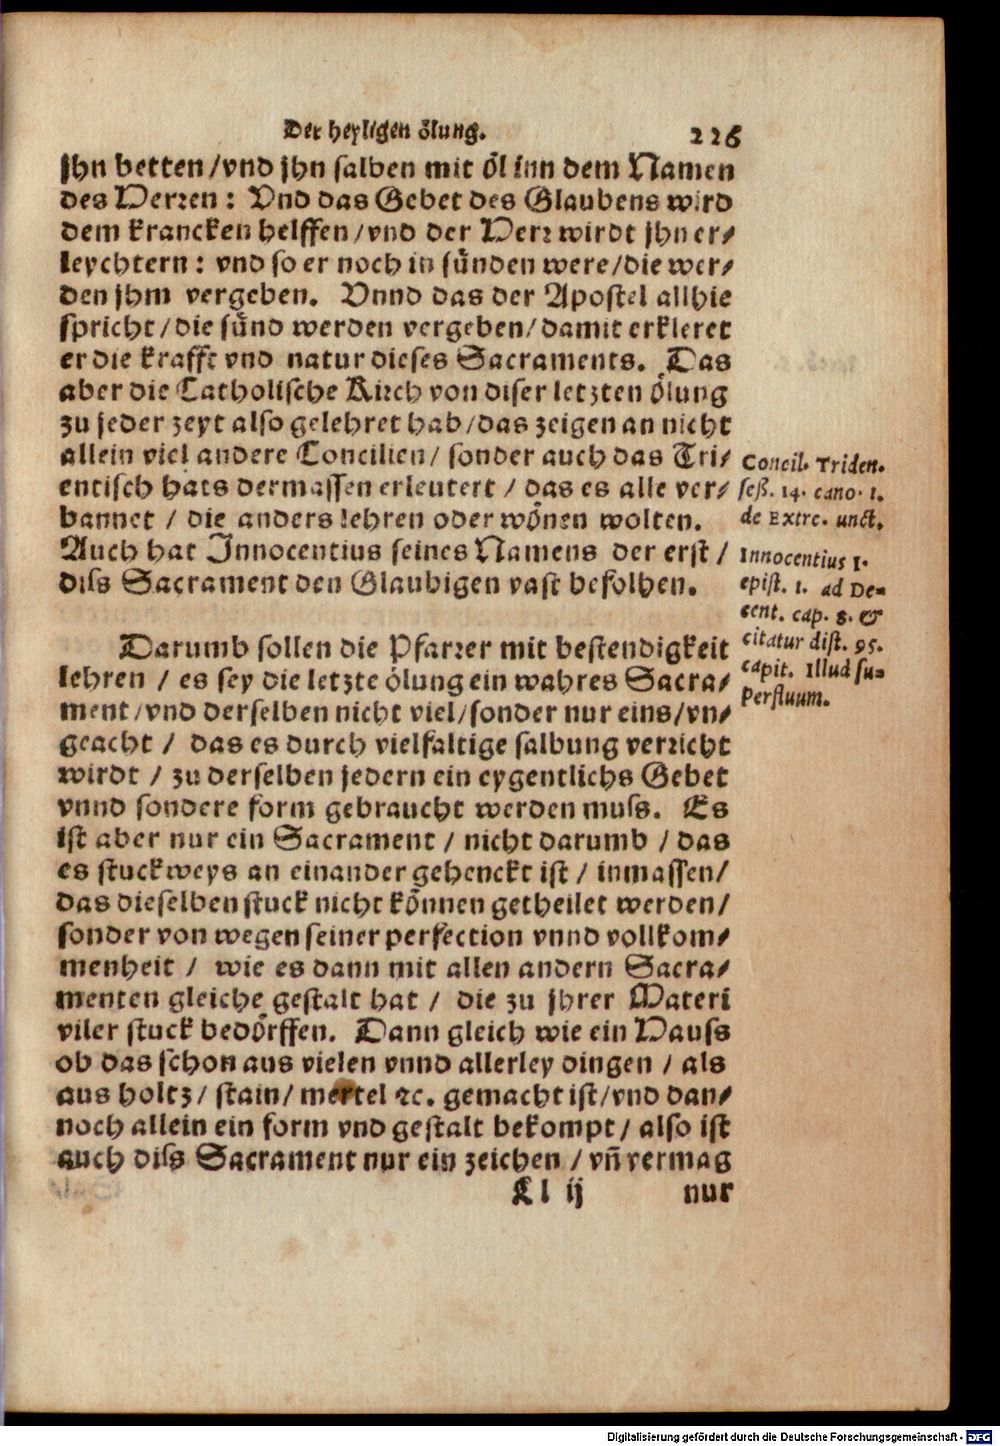 Der heyligen ölung. 226
jhn betten / vnd jhn salben mit öl inn dem Namen
des Herren : Vnd das Gebet des Glaubens wird
dem krancken helffen / vnd der Herr wirdt jhn er-
leychtern : vnd so er noch in sünden were / die wer-
den jhm vergeben. Vnnd das der Apostel allhie
spricht / die sünd werden vergeben / damit erkleret
er die krafft vnd natur dieses Sacraments. Das
aber die Catholische Kirch von diser letzten ölung
zu jeder zeyt also gelehret hab / das zeigen an nicht
allein viel andere Concilien / sonder auch das Tri-
entisch hats dermassen erleutert / das es alle ver-
bannet / die anders lehren oder wönen wolten.
Auch hat Innocentius seines Namens der erst /
diss Sacrament den Glaubigen vast befolhen.
Concil. Triden.
seß. 14. cano. 1.
de Extre. unct.
Innocentius 1.
epist. 1. ad De-
cent. cap. 8. &
citatur dist. 95.
capit. Illud su-
perfluum.
Darumb sollen die Pfarrer mit bestendigkeit
lehren / es sey die letzte ölung ein wahres Sacra-
ment / vnd derselben nicht viel / sonder nur eins / vn-
geacht / das es durch vielfaltige salbung verricht
wirdt / zu derselben jedern ein eygentlichs Gebet
vnnd sondere form gebraucht werden muss. Es
ist aber nur ein Sacrament / nicht darumb / das
es stuckweys an einander gehenckt ist / inmassen /
das dieselben stuck nicht können getheilet werden /
sonder von wegen seiner perfection vnnd vollkom-
menheit / wie es dann mit allen andern Sacra-
menten gleiche gestalt hat / die zu jhrer Materi
viler stuck bedörffen. Dann gleich wie ein Hauss
ob das schon aus vielen vnnd allerley dingen / als
aus holtz / stain / mertel ꝛc. gemacht ist / vnd dan-
noch allein ein form vnd gestalt bekompt / also ist
auch diss Sacrament nur ein zeichen / vn̄ vermag
Ll ij nur
Digitalisierung gefördert durch die Deutsche Forschungsgemeinschaft - DFG